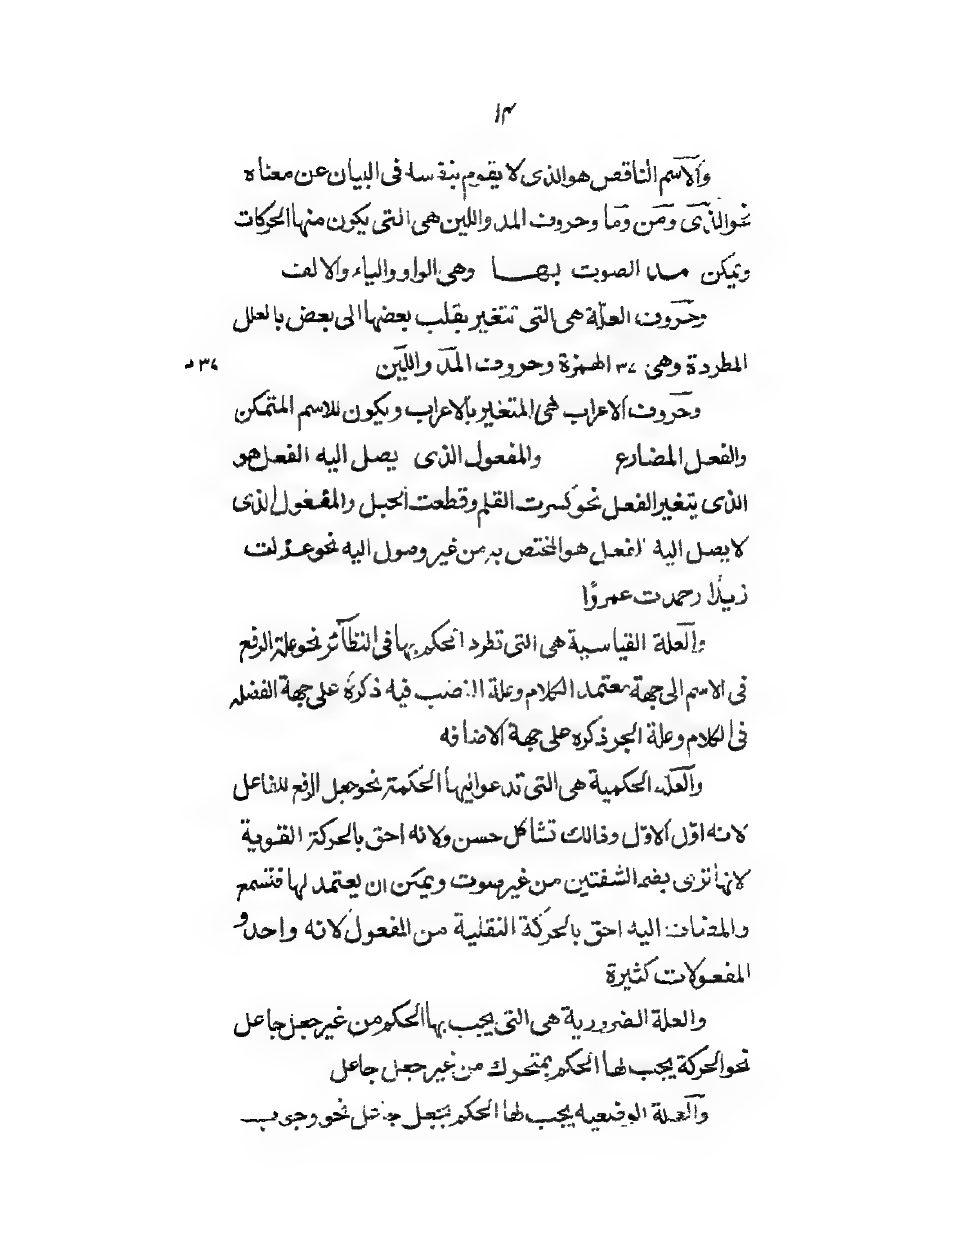 ١٣
والاسم الناقص هو الذى لا يقوم بنفسه فى البيان عن معناه
نحو الذى ومن وما وحروف المد واللين هى التى يكون منها الحركات
ويمكن مد الصوت بها وهى الواو والياء والالف
وحروف العلة هى التى تتغير بقلب بعضها الى بعض بالعلل
المطردة وهى ٣٧ الهمزة وحروف المد واللين
٣٧
وحروف الاعراب هى المتغير بالاعراب ويكون للاسم المتمكن
والفعل المضارع والمفعول الذى يصل اليه الفعل هو
الذى يتغير الفعل نحو كسرت القلم وقطعت الحبل والمفعول الذى
لا يصل اليه الفعل هو المختص به من غير وصول اليه نحو عذلت
زيدا رحمدت عمروًا
والعلة القياسية هى التى تطرد الحكم بها فى النظائر نحو علة الرفع
فى الاسم الى جهة معتمد الكلام وعلة النصب فيه ذكره على جهة الفضله
فى الكلام وعلة الجر ذكره على جهة الاضافه
والعلة الحكمية هى التى تدعو اليها الحكمة نحو جعل الرفع للفاعل
لانه اوّل الاوّل وذالك تشاكل حسن ولانه احق بالحركة القوية
لانها ترى بضم الشفتين من غير صوت ويمكن ان يعتمد لها فتسمع
والمضاف اليه احق بالحركة الثقلية من المفعول لانه واحد و
المفعولات كثيرة
والعلة الضرورية هى التى يجب بها الحكم من غير جعل جاعل
نحو الحركة يجب لها الحكم بمتحرك من غير جعل جاعل
والعلة الوضعيه يجب لها الحكم بجعل جاعل نحو وجوب